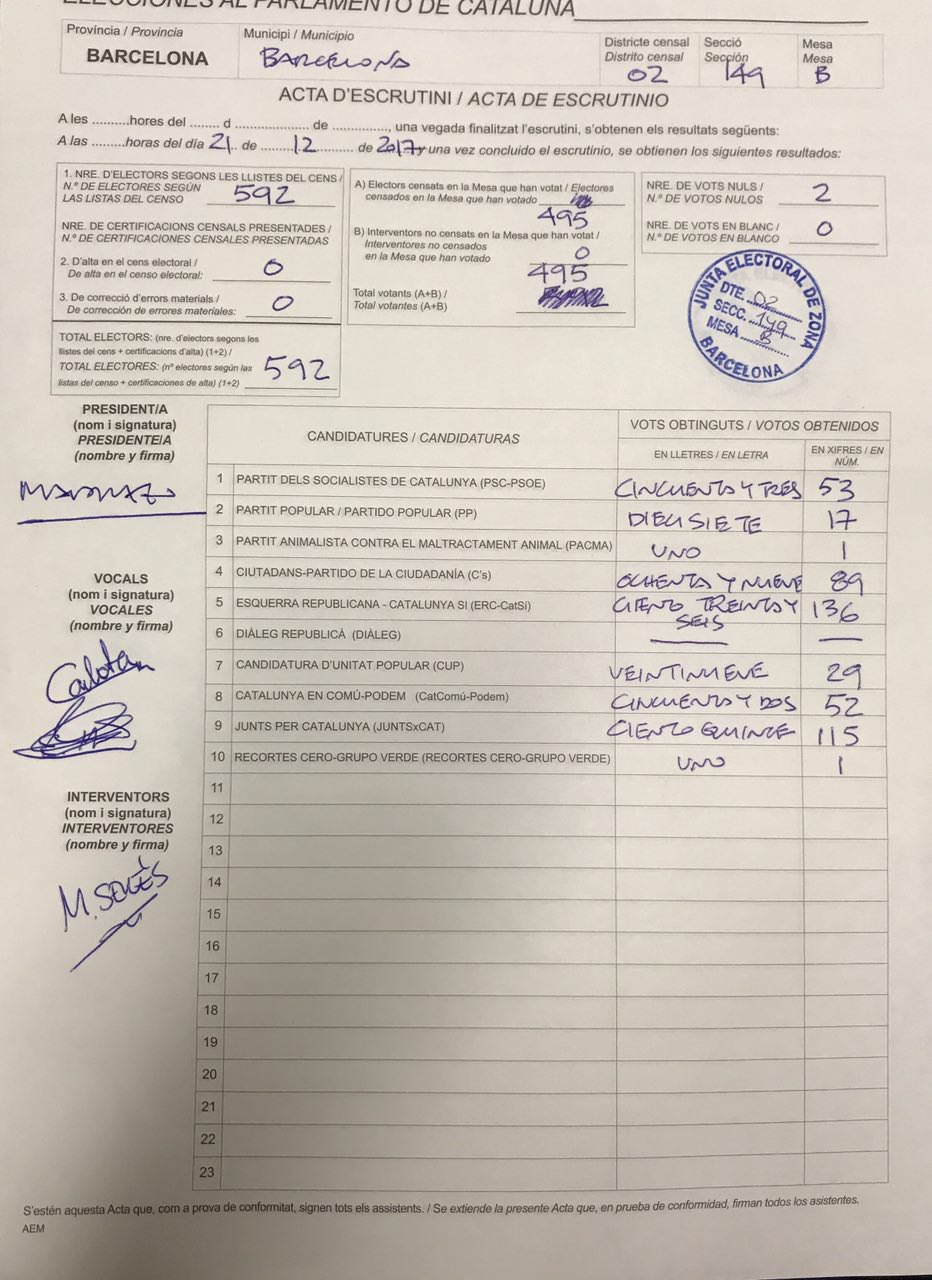 ELECCIONES AL PARLAMENTO DE CATALUÑA
Província / Provincia
BARCELONA
Municipi / Municipio
BARCELONA
Districte censal
Distrito censal
02
Secció
Sección
149
Mesa
Mesa
B
ACTA D'ESCRUTINI / ACTA DE ESCRUTINIO
A les ..........hores del ........ d .................... de ................, una vegada finalitzat l'escrutini, s'obtenen els resultats següents:
A las .........horas del día 21 de ........12......... de 2017 y una vez concluido el escrutinio, se obtienen los siguientes resultados:
1. NRE. D'ELECTORS SEGONS LES LLISTES DEL CENS /
N.º DE ELECTORES SEGÚN
LAS LISTAS DEL CENSO
592
NRE. DE CERTIFICACIONS CENSALS PRESENTADES /
N.º DE CERTIFICACIONES CENSALES PRESENTADAS
2. D'alta en el cens electoral /
De alta en el censo electoral:
0
3. De correcció d'errors materials /
De corrección de errores materiales:
0
TOTAL ELECTORS: (nre. d'electors segons les
llistes del cens + certificacions d'alta) (1+2) /
TOTAL ELECTORES: (nº electores según las
listas del censo + certificaciones de alta) (1+2)
592
A) Electors censats en la Mesa que han votat / Electores
censados en la Mesa que han votado
495
B) Interventors no censats en la Mesa que han votat /
Interventores no censados
en la Mesa que han votado
0
495
Total votants (A+B) /
Total votantes (A+B)
NRE. DE VOTS NULS /
N.º DE VOTOS NULOS
2
NRE. DE VOTS EN BLANC /
N.º DE VOTOS EN BLANCO
0
JUNTA ELECTORAL DE ZONA
DTE. 02
SECC. 149
MESA B
BARCELONA
PRESIDENT/A
(nom i signatura)
PRESIDENTE/A
(nombre y firma)
VOCALS
(nom i signatura)
VOCALES
(nombre y firma)
INTERVENTORS
(nom i signatura)
INTERVENTORES
(nombre y firma)
CANDIDATURES / CANDIDATURAS
VOTS OBTINGUTS / VOTOS OBTENIDOS
EN LLETRES / EN LETRA
EN XIFRES / EN NÚM.
1 PARTIT DELS SOCIALISTES DE CATALUNYA (PSC-PSOE) CINCUENTA Y TRES 53
2 PARTIT POPULAR / PARTIDO POPULAR (PP) DIECISIETE 17
3 PARTIT ANIMALISTA CONTRA EL MALTRACTAMENT ANIMAL (PACMA) UNO 1
4 CIUTADANS-PARTIDO DE LA CIUDADANÍA (C's) OCHENTA Y NUEVE 89
5 ESQUERRA REPUBLICANA - CATALUNYA SI (ERC-CatSí) CIENTO TREINTA Y SEIS 136
6 DIÀLEG REPUBLICÀ (DIÀLEG) — —
7 CANDIDATURA D'UNITAT POPULAR (CUP) VEINTINUEVE 29
8 CATALUNYA EN COMÚ-PODEM (CatComú-Podem) CINCUENTA Y DOS 52
9 JUNTS PER CATALUNYA (JUNTSxCAT) CIENTO QUINCE 115
10 RECORTES CERO-GRUPO VERDE (RECORTES CERO-GRUPO VERDE) UNO 1
11
12
13
14
15
16
17
18
19
20
21
22
23
S'estén aquesta Acta que, com a prova de conformitat, signen tots els assistents. / Se extiende la presente Acta que, en prueba de conformidad, firman todos los asistentes.
AEM